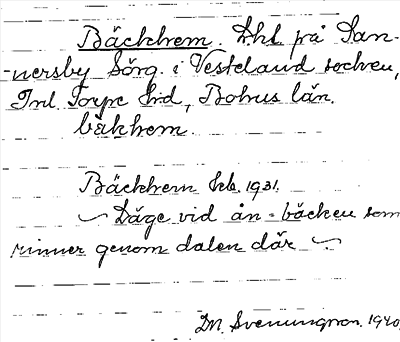 Bäckhem. Lht på San-
-nersby Sörg. i Vesteland socken,
Inl Torpe hrd, Bohus län.
bäkhem.
Bäckhem hb. 1931.
~ Läge vid ån = bäcken som
rinner genom dalen där ~.
D.N. Svenungson. 1940.